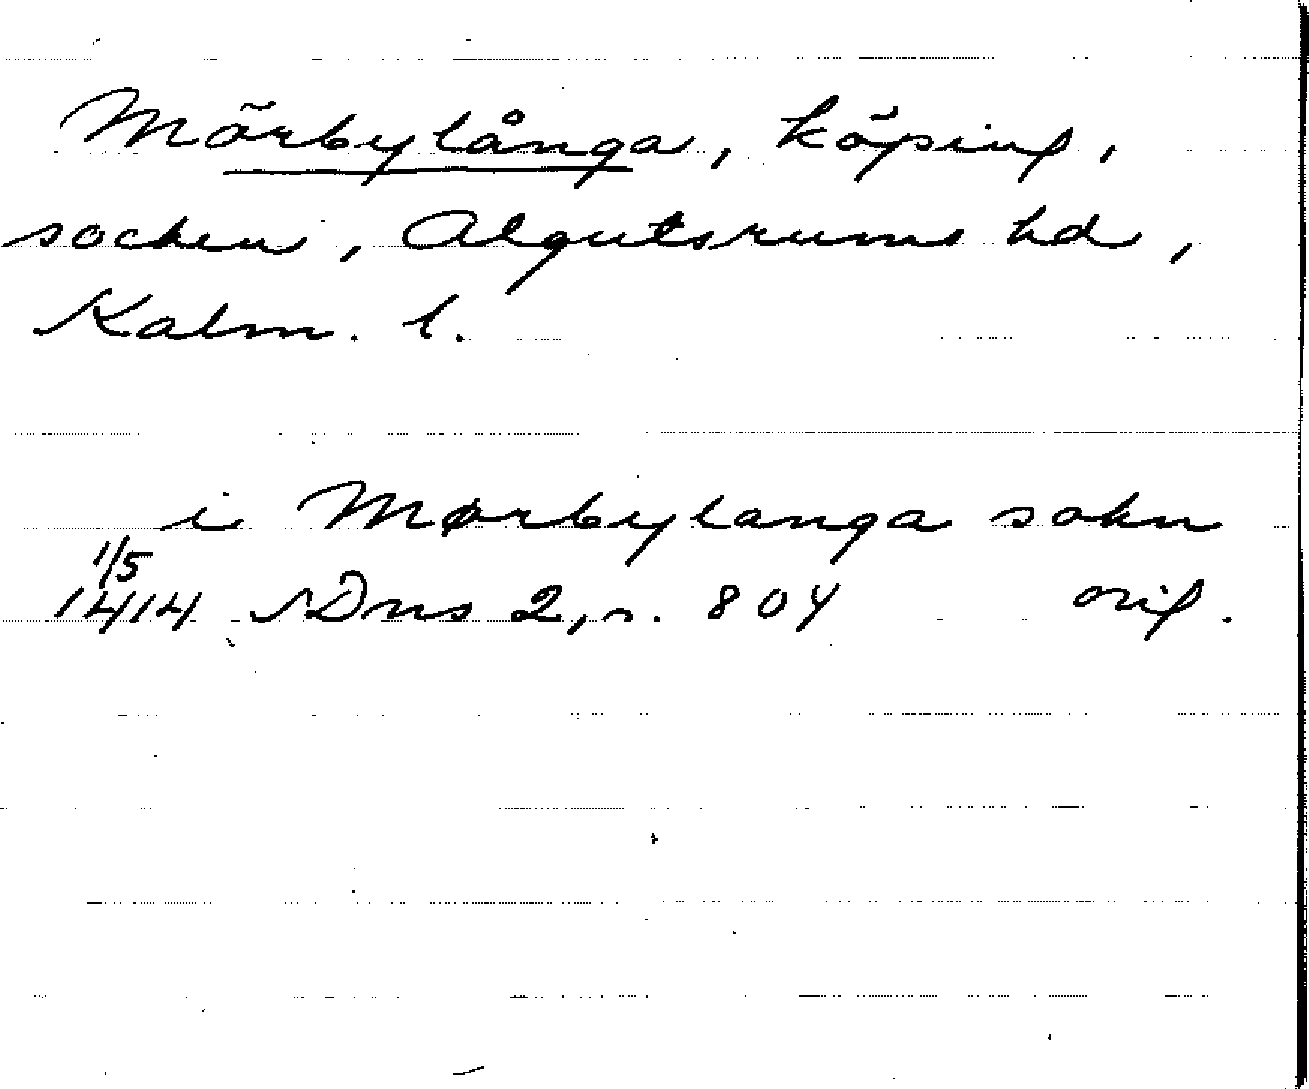 Mörbylånga, köping,
socken, Algutsrums hd,
Kalm. l.
i Mørbylanga sokn
1/5
1414 SDns 2, s. 804 orig.